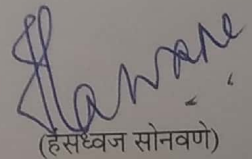 (हंसध्वज सोनवणे)